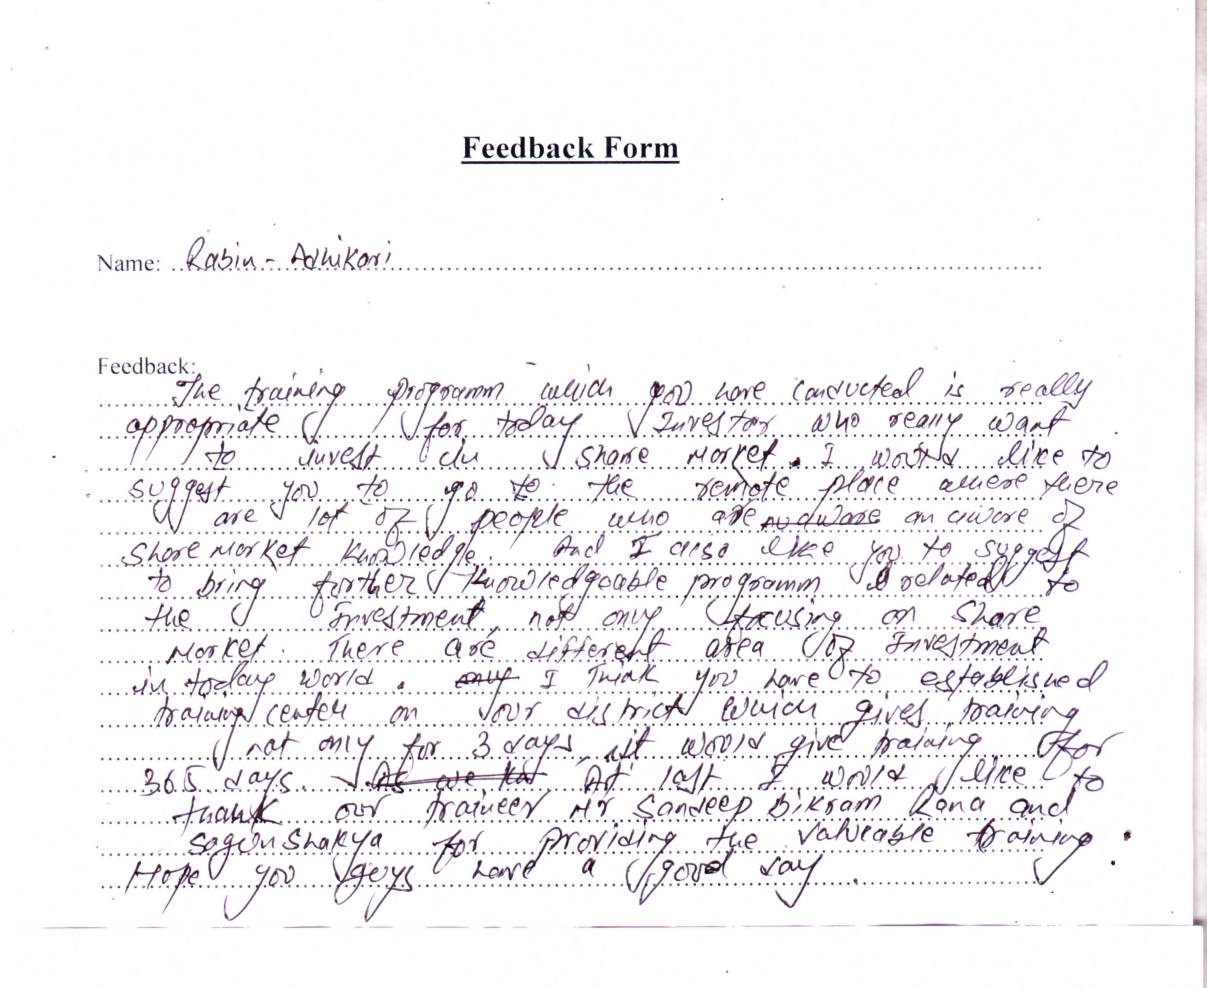 Feedback Form
Name: Rabin - Adhikari
Feedback:
The training programm which you have conducted is really
appropriate for today Investor who really want
to invest in share market. I would like to
suggest you to go to the remote place where there
are lot of people who are an aware of
share market knowledge. And I also like you to suggest
to bring further knowledgeable programm related to
the Investment, not only focusing on share
market. There are different area of Investment
in today world. I think you have to established
training center on our district which gives training
not only for 3 days, it would give training for
365 days. At last I would like to
thank our traineer Mr Sandeep Bikram Rana and
Sagun Shakya for providing the valueable training.
Hope you guys have a good day.